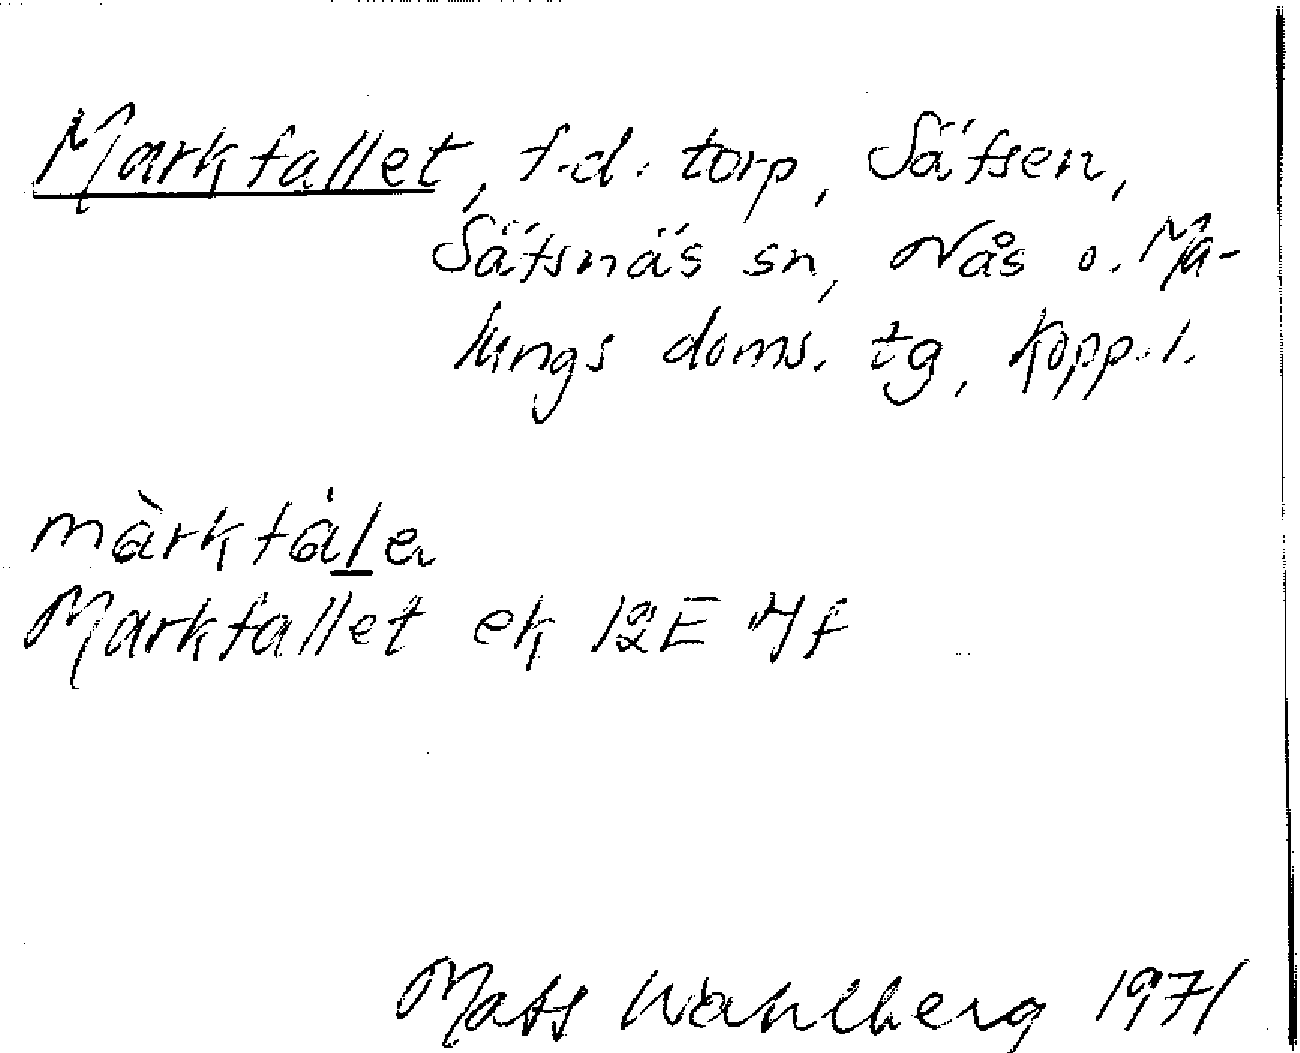 Markfallet, f.d. torp, Säfsen,
Säfsnäs sn, Nås o. Ma-
lungs doms. tg, Kopp. l.
màrkfȧlen
Markfallet ek 12E 4f
Mats Wahlberg 1971